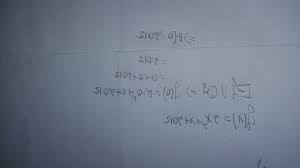 f(x) = 2x²+x+2015
∩ Oy => f(0) = 2.0²+0+2015
= 0+0+2015
= 2015
=> B(0; 2015)